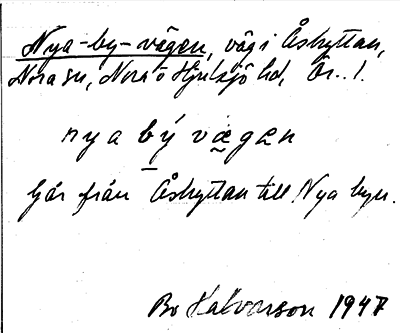 Nya-by-vägen, väg i Åshyttan,
Nora sn, Nora o Hjulsjö hd, Ör. l.
nya bý vægen
Går från Åshyttan till Nya byn.
Bo Halvarson 1947